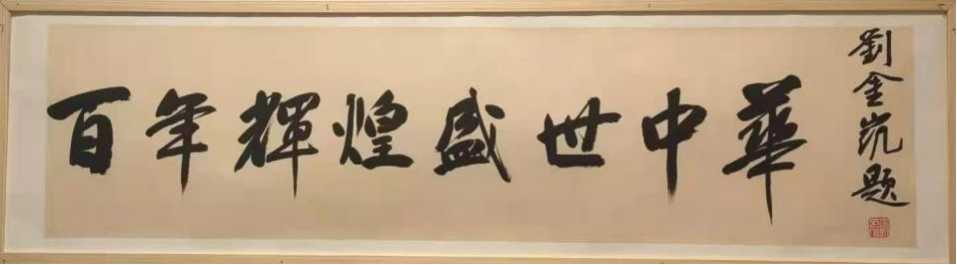 百年輝煌盛世中華
劉金凯题